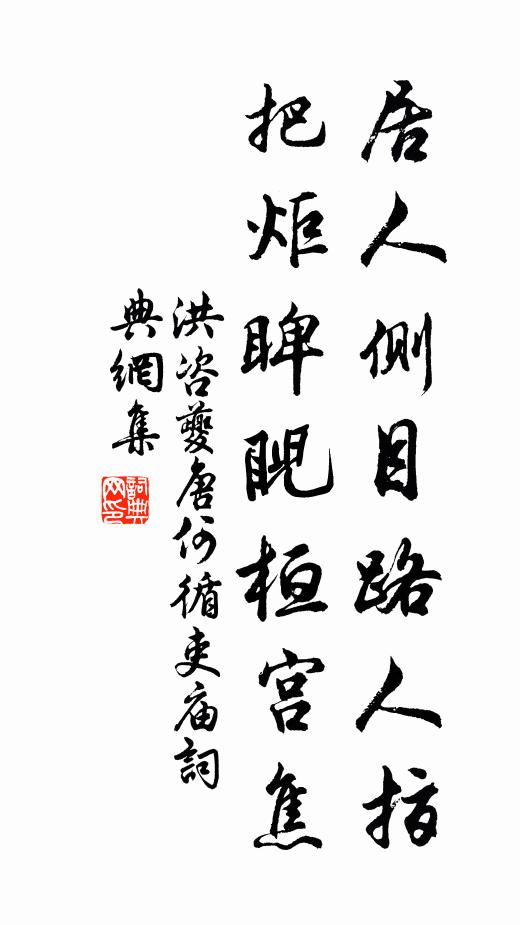 居人側目路人指
把炬睥睨桓宮焦
洪咨夔唐何循吏庙詞
典網集
詞典
网印